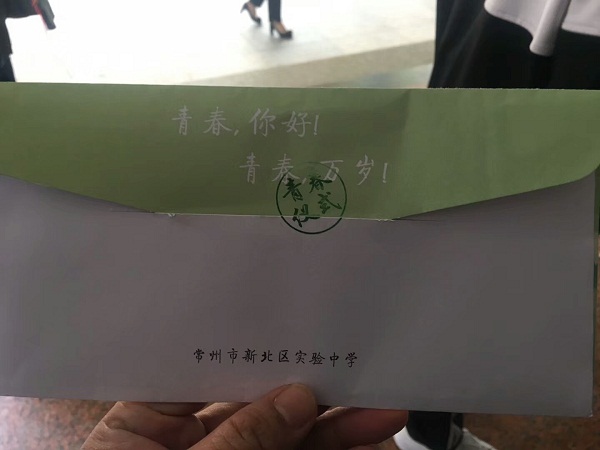 青春,你好!
青春,万岁!
青春
仪式
常州市新北区实验中学